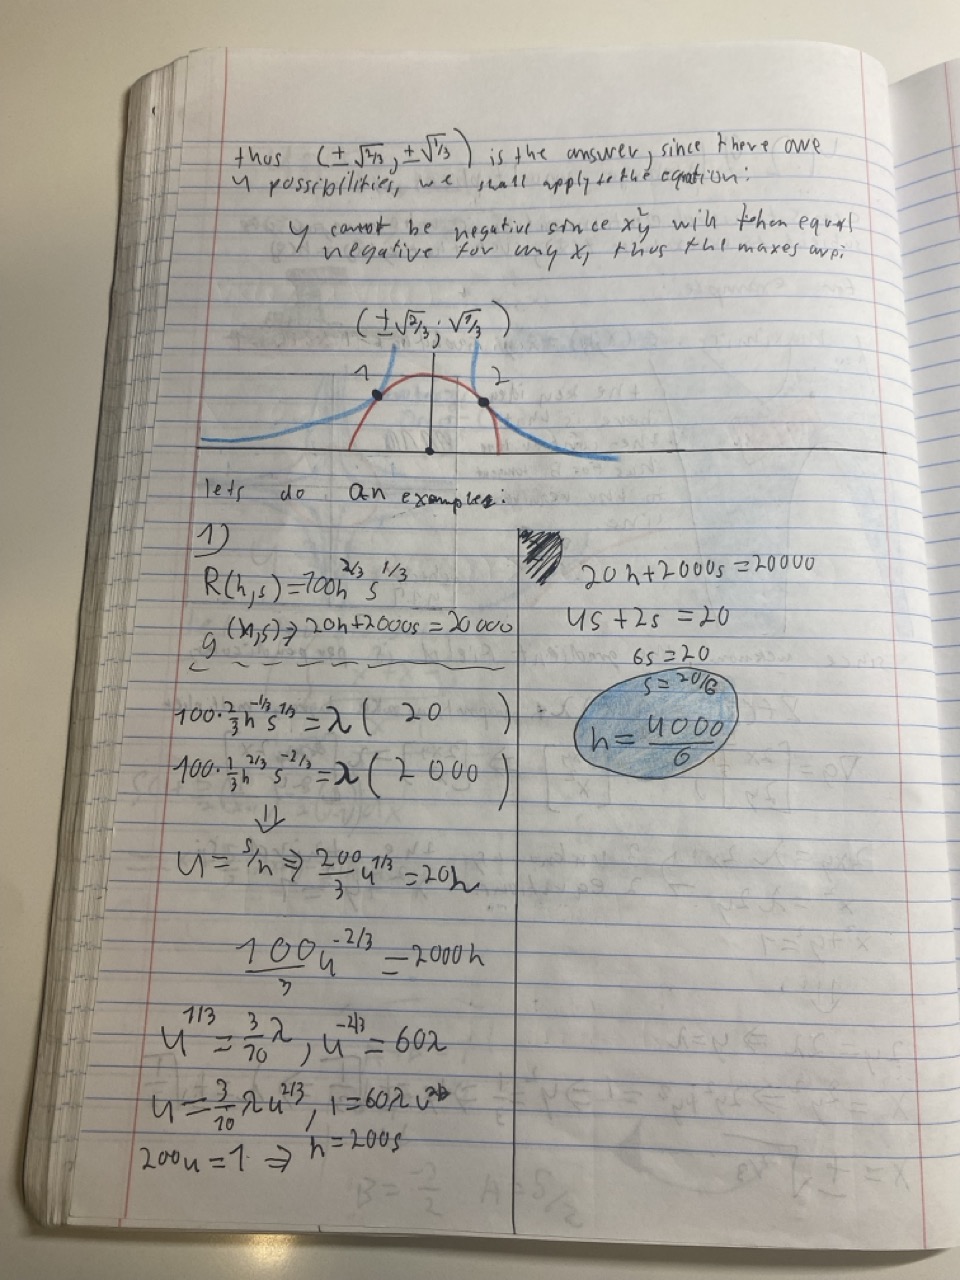 thus (±√2/3, ±√1/3) is the answer, since there are
4 possibilities, we shall apply to the eqation:
y cannot be negative since x²y will then equal
negative for any x, thus the maxes are:
(±√2/3; √1/3)
1 2
lets do an examples:
1)
R(h,s)=100h^2/3 s^1/3
g(h,s)⇒20h+2000s=20000
100·2/3 h^-1/3 s^1/3 = λ( 20 )
100·1/3 h^2/3 s^-2/3 = λ( 2000 )
⇓
u = s/h ⇒ 200/3 u^1/3 = 20λ
100/3 u^-2/3 = 2000λ
u^1/3 = 3/10 λ, u^-2/3 = 60λ
u = 3/10 λu^2/3, 1=60λu^2/3
200u=1 ⇒ h=200s
20h+2000s=20000
4s+2s=20
6s=20
s=20/6
h=4000/6